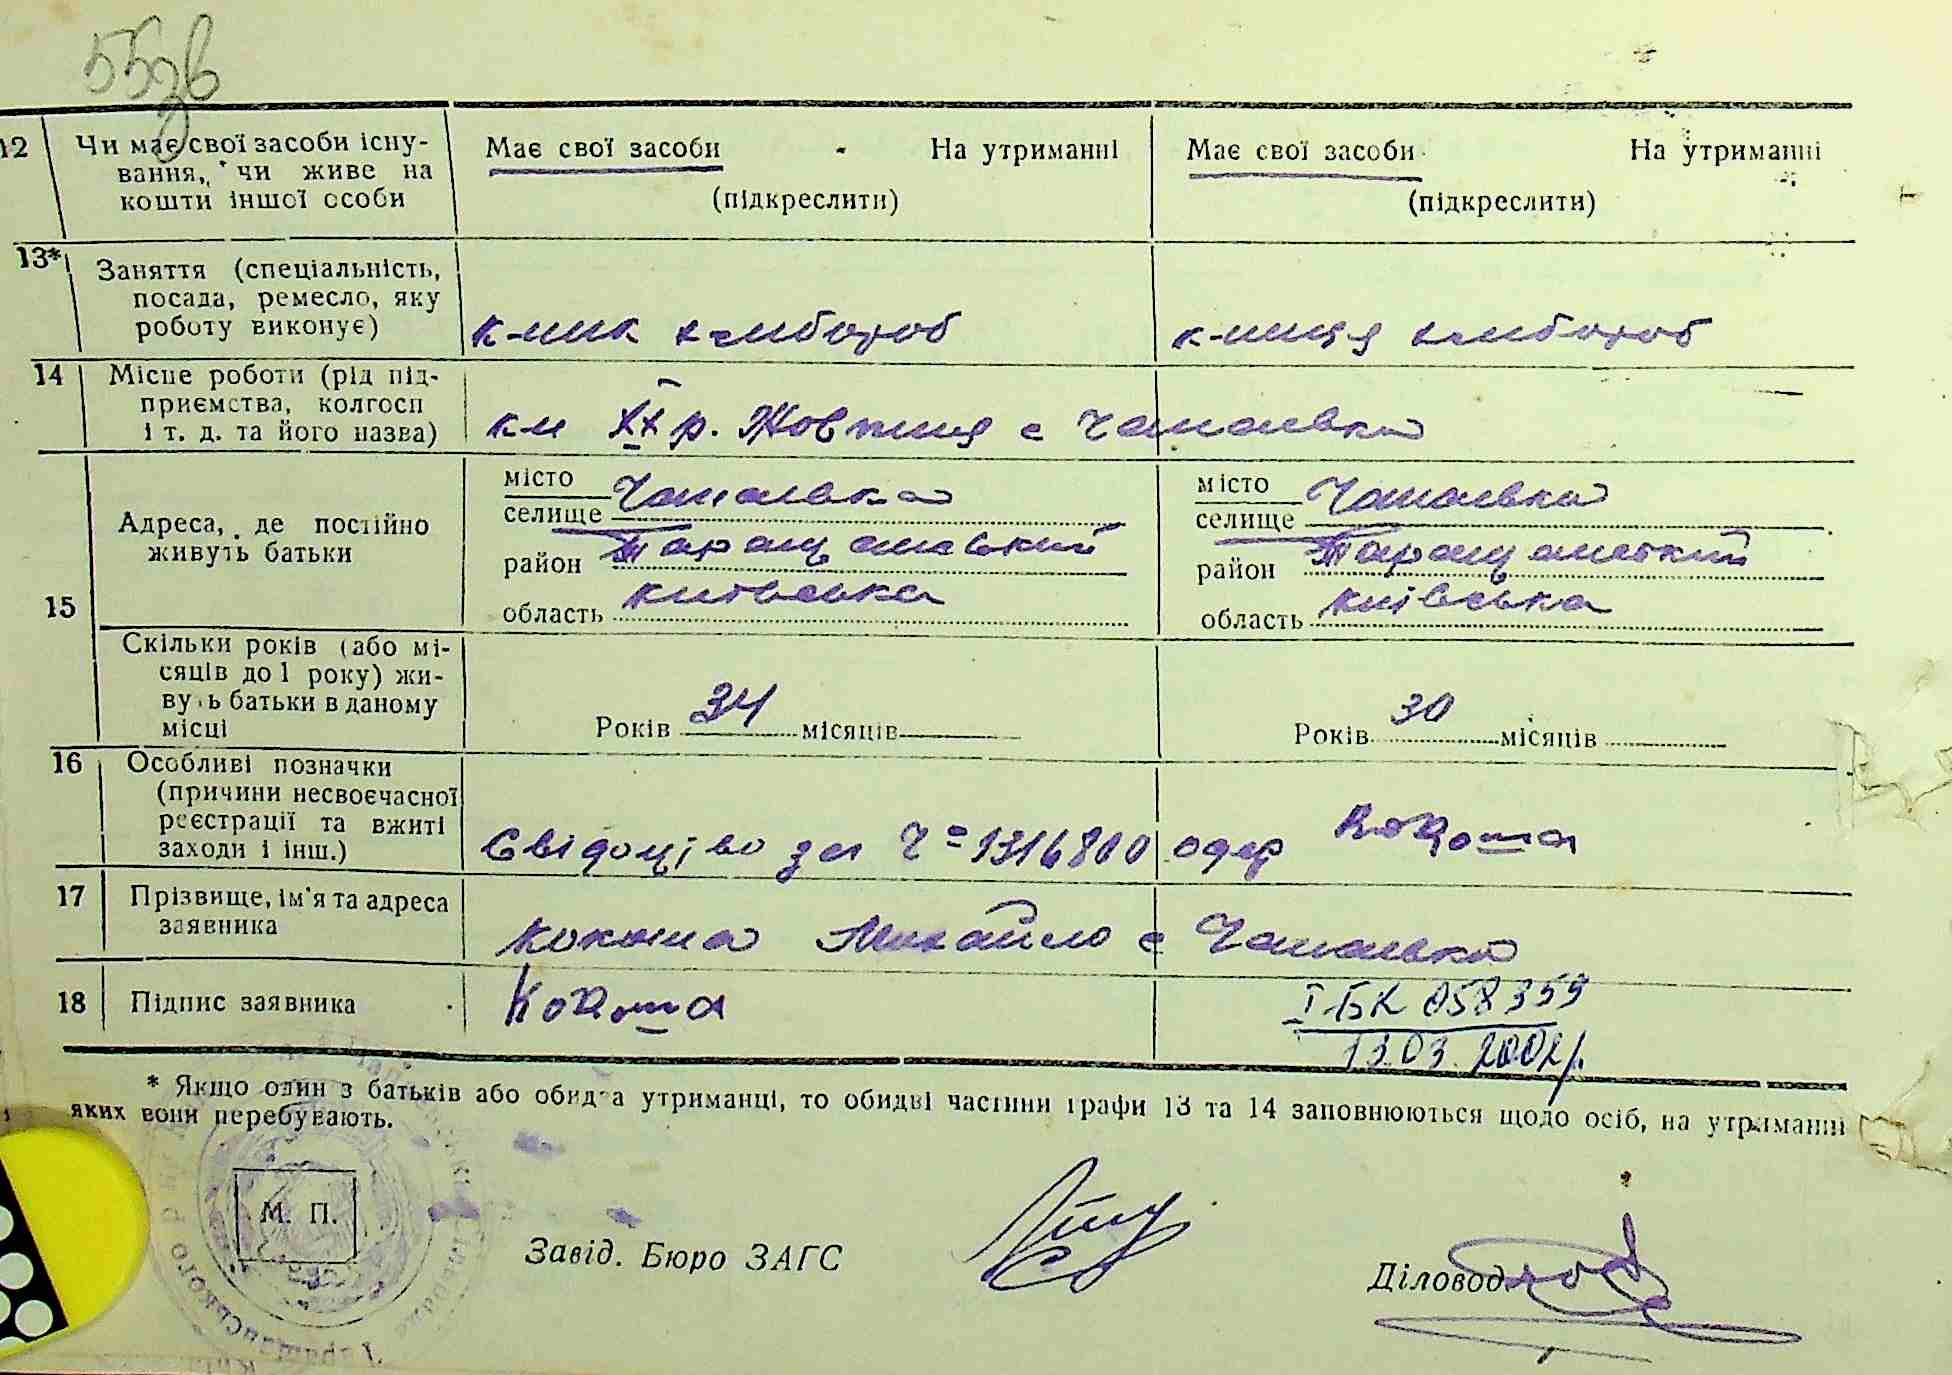 12 Чи має свої засоби існу-
вання, чи живе на
кошти іншої особи
Має свої засоби На утриманні
(підкреслити)
Має свої засоби На утриманні
(підкреслити)
13* Заняття (спеціальність,
посада, ремесло, яку
роботу виконує)
к-ник хлібороб
к-ниця хлібороб
14 Місце роботи (рід під-
приємства, колгосп
і т. д. та його назва)
км ХХ р. Жовтня с Чапаєвка
15 Адреса, де постійно
живуть батьки
місто
селище Чапаєвка
район Таращанський
область Київська
місто
селище Чапаєвка
район Таращанський
область Київська
Скільки років (або мі-
сяців до 1 року) жи-
вуть батьки в даному
місці
Років 34 місяців
Років 30 місяців
16 Особливі позначки
(причини несвоєчасної
реєстрації та вжиті
заходи і інш.)
Свідоцтво за одер Кокоша
17 Прізвище, ім'я та адреса
заявника
Кокоша Михайло с Чапаєвка
18 Підпис заявника
Кокоша
І-БК 058359
13.03.2002р.
* Якщо один з батьків або обидва утриманці, то обидві частини графи 13 та 14 заповнюються щодо осіб, на утриманні
яких вони перебувають.
М. П.
Завід. Бюро ЗАГС
Діловод